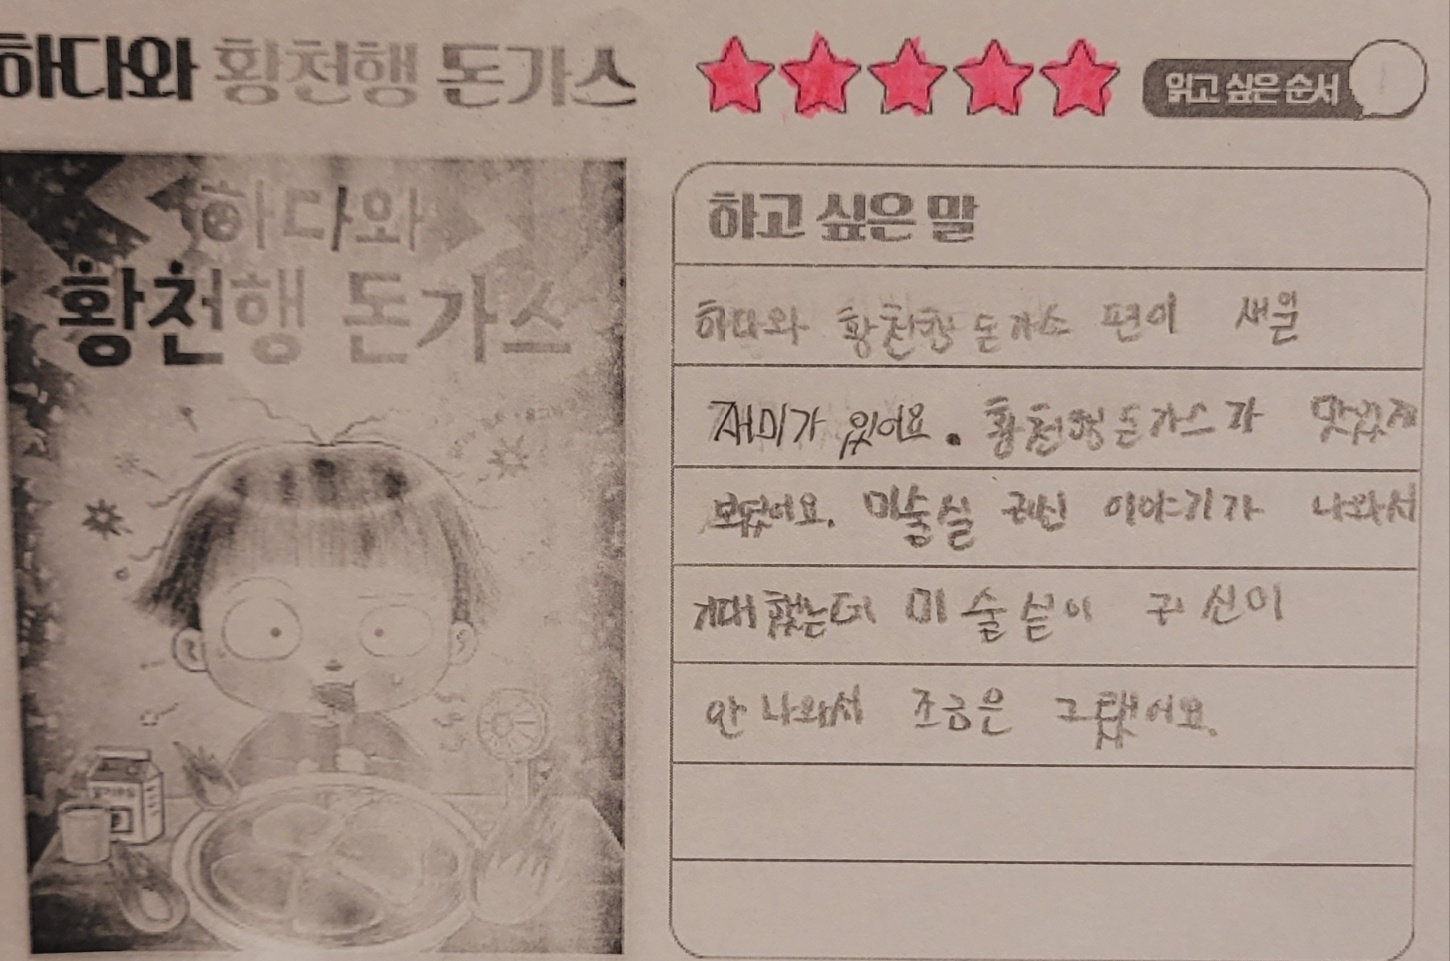 하다와 황천행 돈가스
읽고 싶은 순서
하다와
황천행 돈가스
하고 싶은 말
하다와 황천행 돈가스 편이
재미가 있어요. 황천행돈가스가
보였어요. 미술실 귀신 이야기가 나와서
기대 했는데 미술실이 귀신이
안 나와서 조금은 그랬어요.